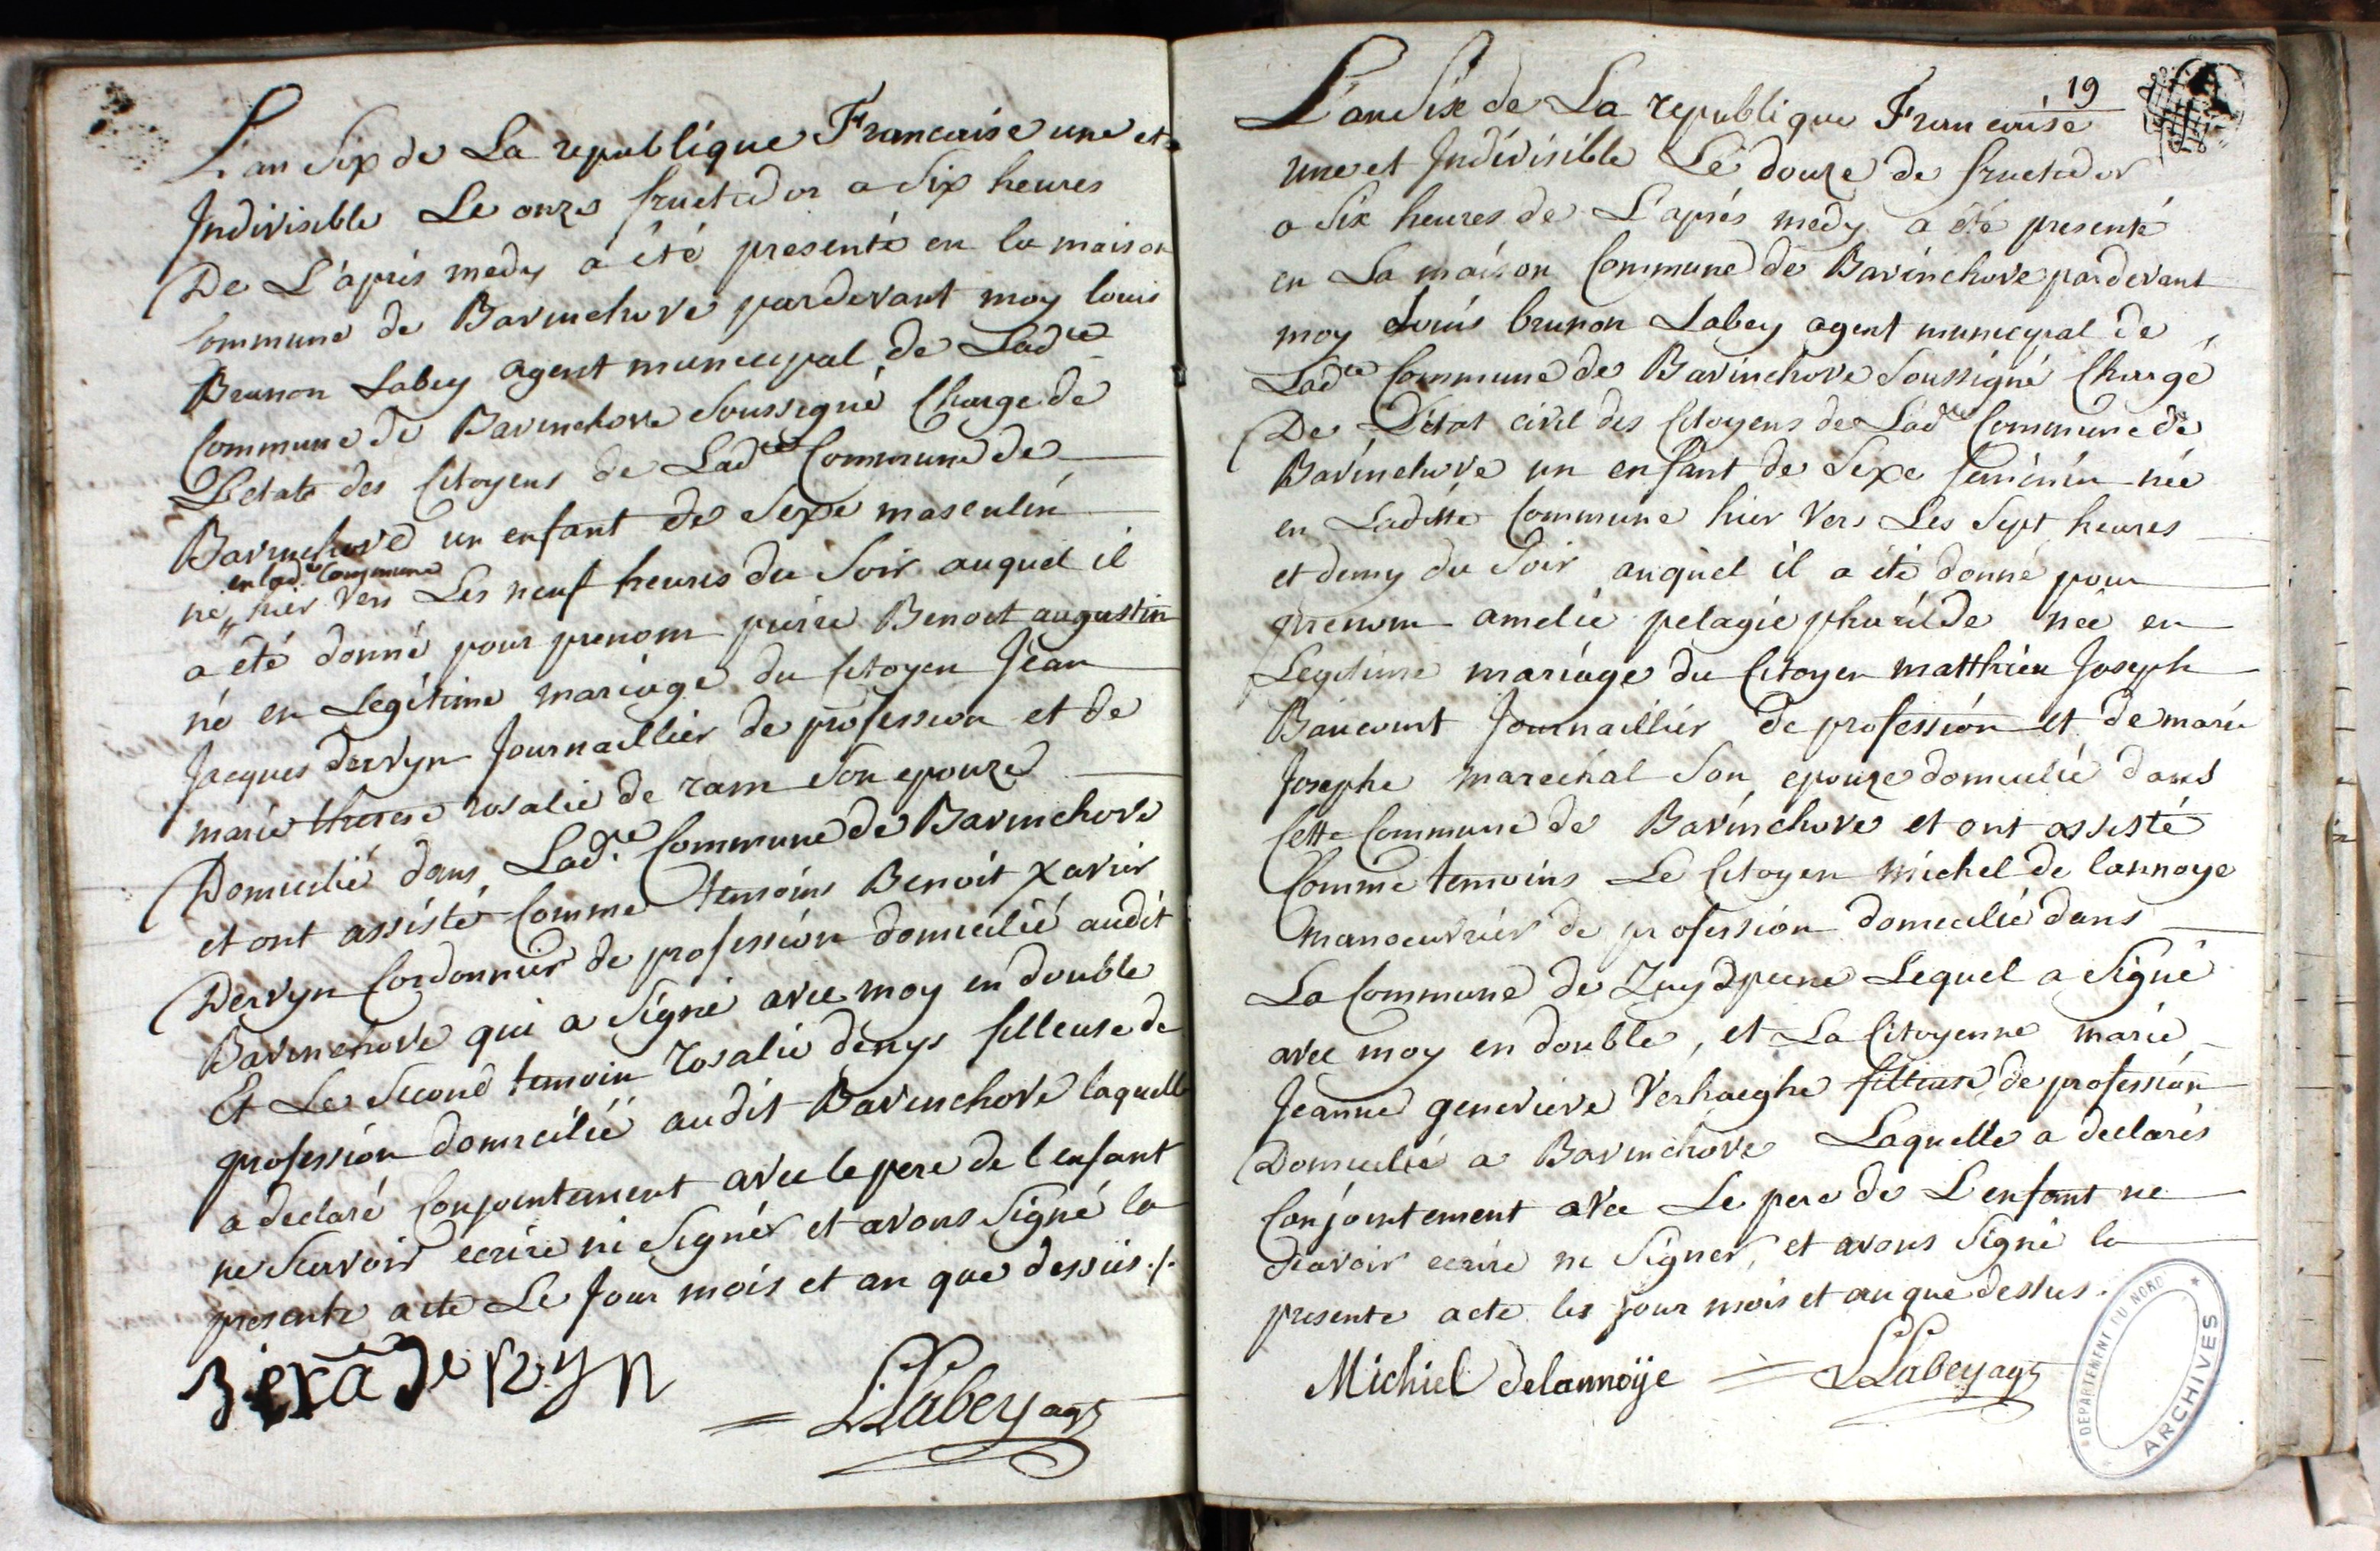 L'an Six de La republique Francaise une et
Indivisible Le onze fructidor a Six heures
De L'aprés medy a été presenté en la maison
Commune de Bavinchove pardevant moy louis
Brunon Labey agent municipal de Ladte
Commune de Bavinchove Soussigné Charge de
L'etats des Citoyens de Ladte Commune de
Bavinchove un enfant de Sexe masculin
en lade Commune
né hier Vers Les neuf heures du Soir auquel il
a été donné pour prenom pierre Benoit augustin
né en Legitime mariage du Citoyen Jean
Jacques dervyn Journaillier de profession et de
marie therese rosalie de ram Son epouze
Domicilié dans Lade Commune de Bavinchove
et ont assisté Comme temoins Benoit Xavier
Dervyn Cordonnier de profession domicilié audit
Bavinchove qui a Signé avec moy en double
Et Le Second temoin rosalie denys filleuse de
profession domicilié audit Bavinchove laquelle
a declaré Conjointement avec le pere de l'enfant
ne Scavoir ecrire ni Signér et avons Signé la
presente acte Le Jour mois et an que dessus ./.
dervyn
LLabey agt
19
L'an Six de La republique Francaise
une et Indivisible Le douze de fructidor
a Six heures de L'aprés medy a été presenté
en La maison Commune de Bavinchove pardevant
moy Louis brunon Labey agent municipal de
Ladte Commune de Bavinchove Soussigné Chargé
De L'état civil des Citoyens de Ladte Commune de
Bavinchove un enfant de Sexe feminin née
en Laditte Commune hier Vers Les Sept heures
et demy du Soir auquel il a été donné pour
prenom amelie pelagie pharailde née en
Legitime mariage du Citoyen matthieu Joseph
Baucourt Journaillier de profession et de marie
Josephe marechal Son epouze domicilié dans
Cette Commune de Bavinchove et ont assisté
Comme temoins Le Citoyen michel de lannoye
manoeuvrier de profession domicilié dans
La Commune de Zuydpeene Lequel a Signé
avec moy en double, et La Citoyenne marie
Jeanne genevieve Verhaeghe filleuse de profession
Domicilié a Bavinchove Laquelle a declarés
Conjointement avec Le pere de L'enfant ne
Scavoir ecrire ni Signer, et avons Signé la
presente acte les jour mois et an que dessus.
Michiel delannoÿe
LLabey agt
DEPARTEMENT DU NORD
ARCHIVES